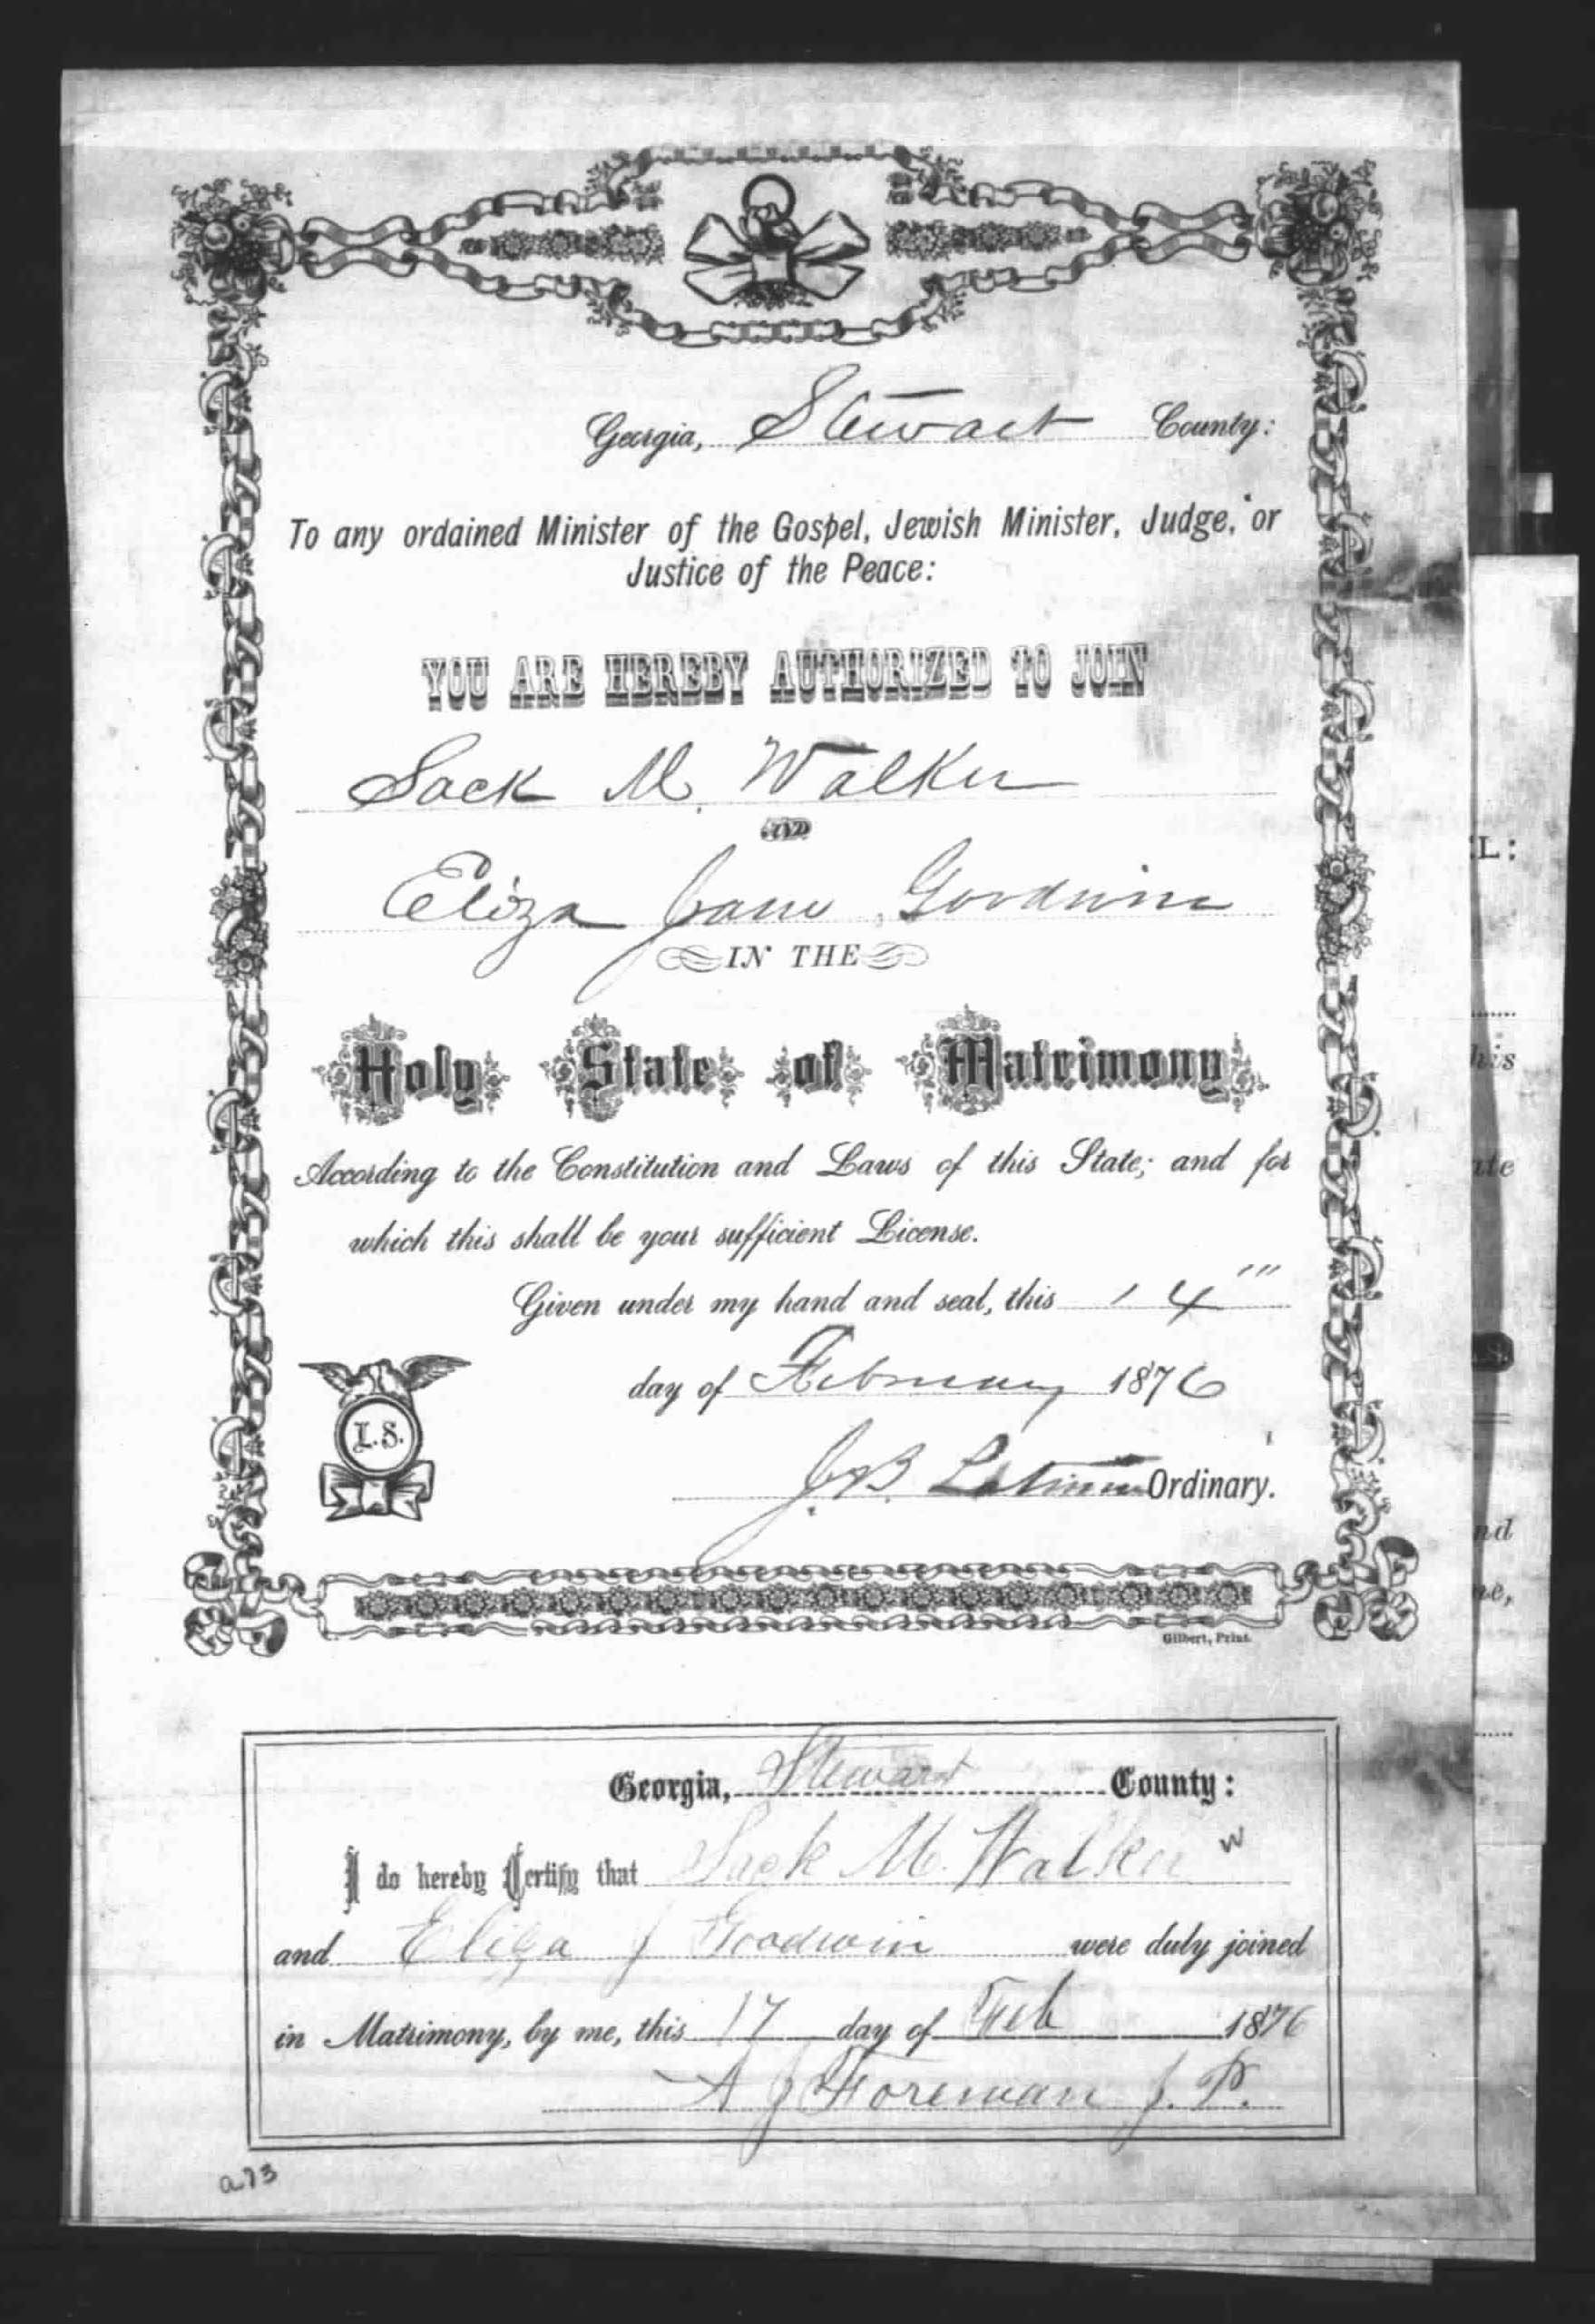 Georgia, Stewart County:
To any ordained Minister of the Gospel, Jewish Minister, Judge, or
Justice of the Peace:
YOU ARE HEREBY AUTHORIZED TO JOIN
Sack M. Walker
AND
Eliza Jane Goodwin
IN THE
Holy State of Matrimony
According to the Constitution and Laws of this State; and for
which this shall be your sufficient License.
Given under my hand and seal, this 14"
day of February 1876
L.S.
J. B. Latimer Ordinary.
Gilbert, Print.
Georgia, Stewart County:
I do hereby Certify that Sack M. Walker W
and Eliza J Goodwin were duly joined
in Matrimony, by me, this 17 day of Feb 1876
A J Foreman J. P.
a73
L:
his
ate
nd